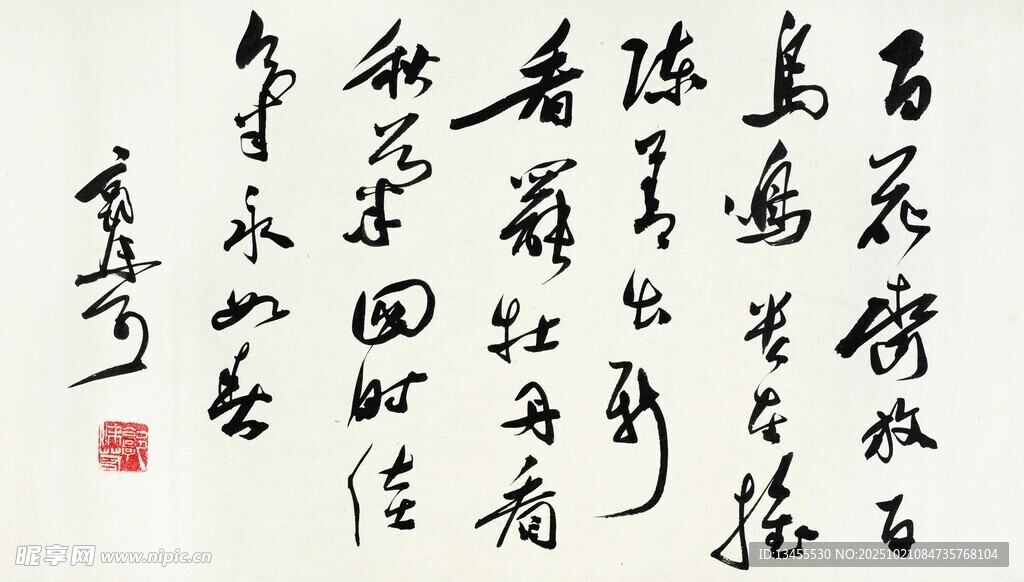 百花齊放百
鳥鳴貴在推
陳善出新
看罷牡丹看
秋菊四时佳
氣永如春
郭沫若
昵享网 www.nipic.cn
ID:13455530 NO:20251021084735768104